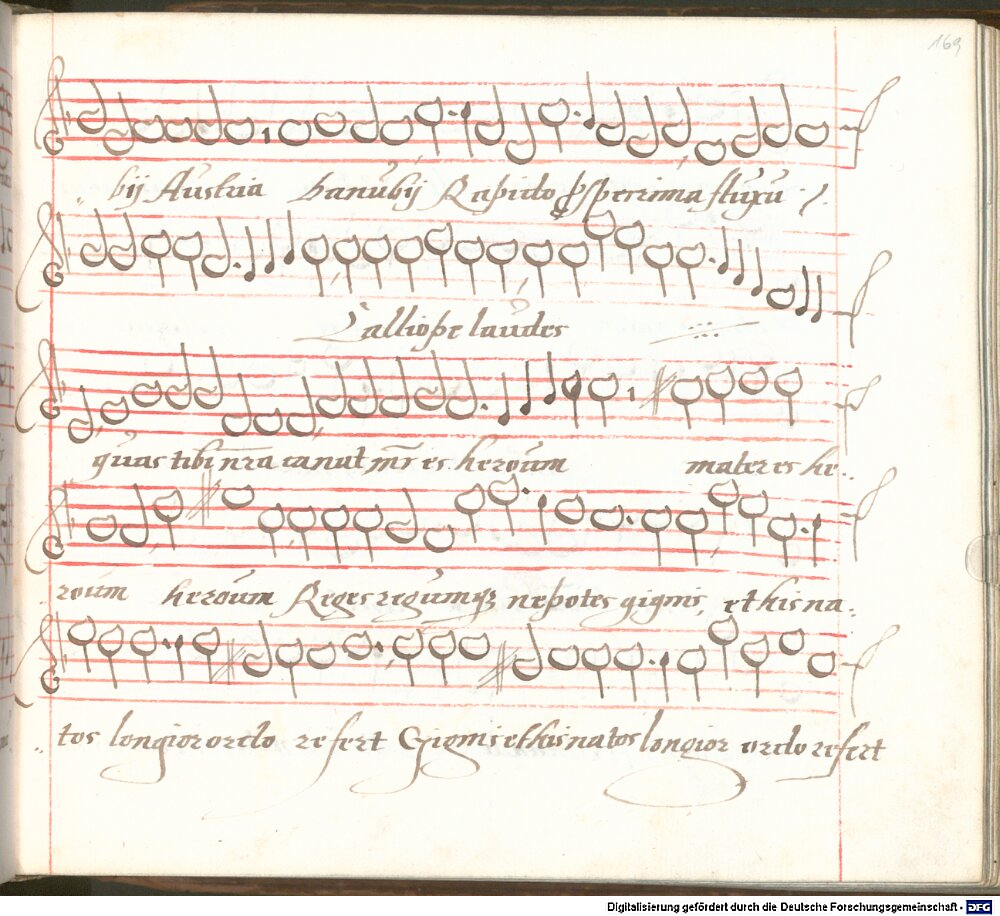 169
bij Austria Danubij Rapido ꝑsperrima fluxu ·/.
Calliope laudes
quas tibi nr̄a canat mr̄ es heroum mater es he.
roum heroum Reges regumqꝫ nepotes gignis, et his na.
tos longior ordo refert Gignis et his natos longior ordo refert
Digitalisierung gefördert durch die Deutsche Forschungsgemeinschaft - DFG